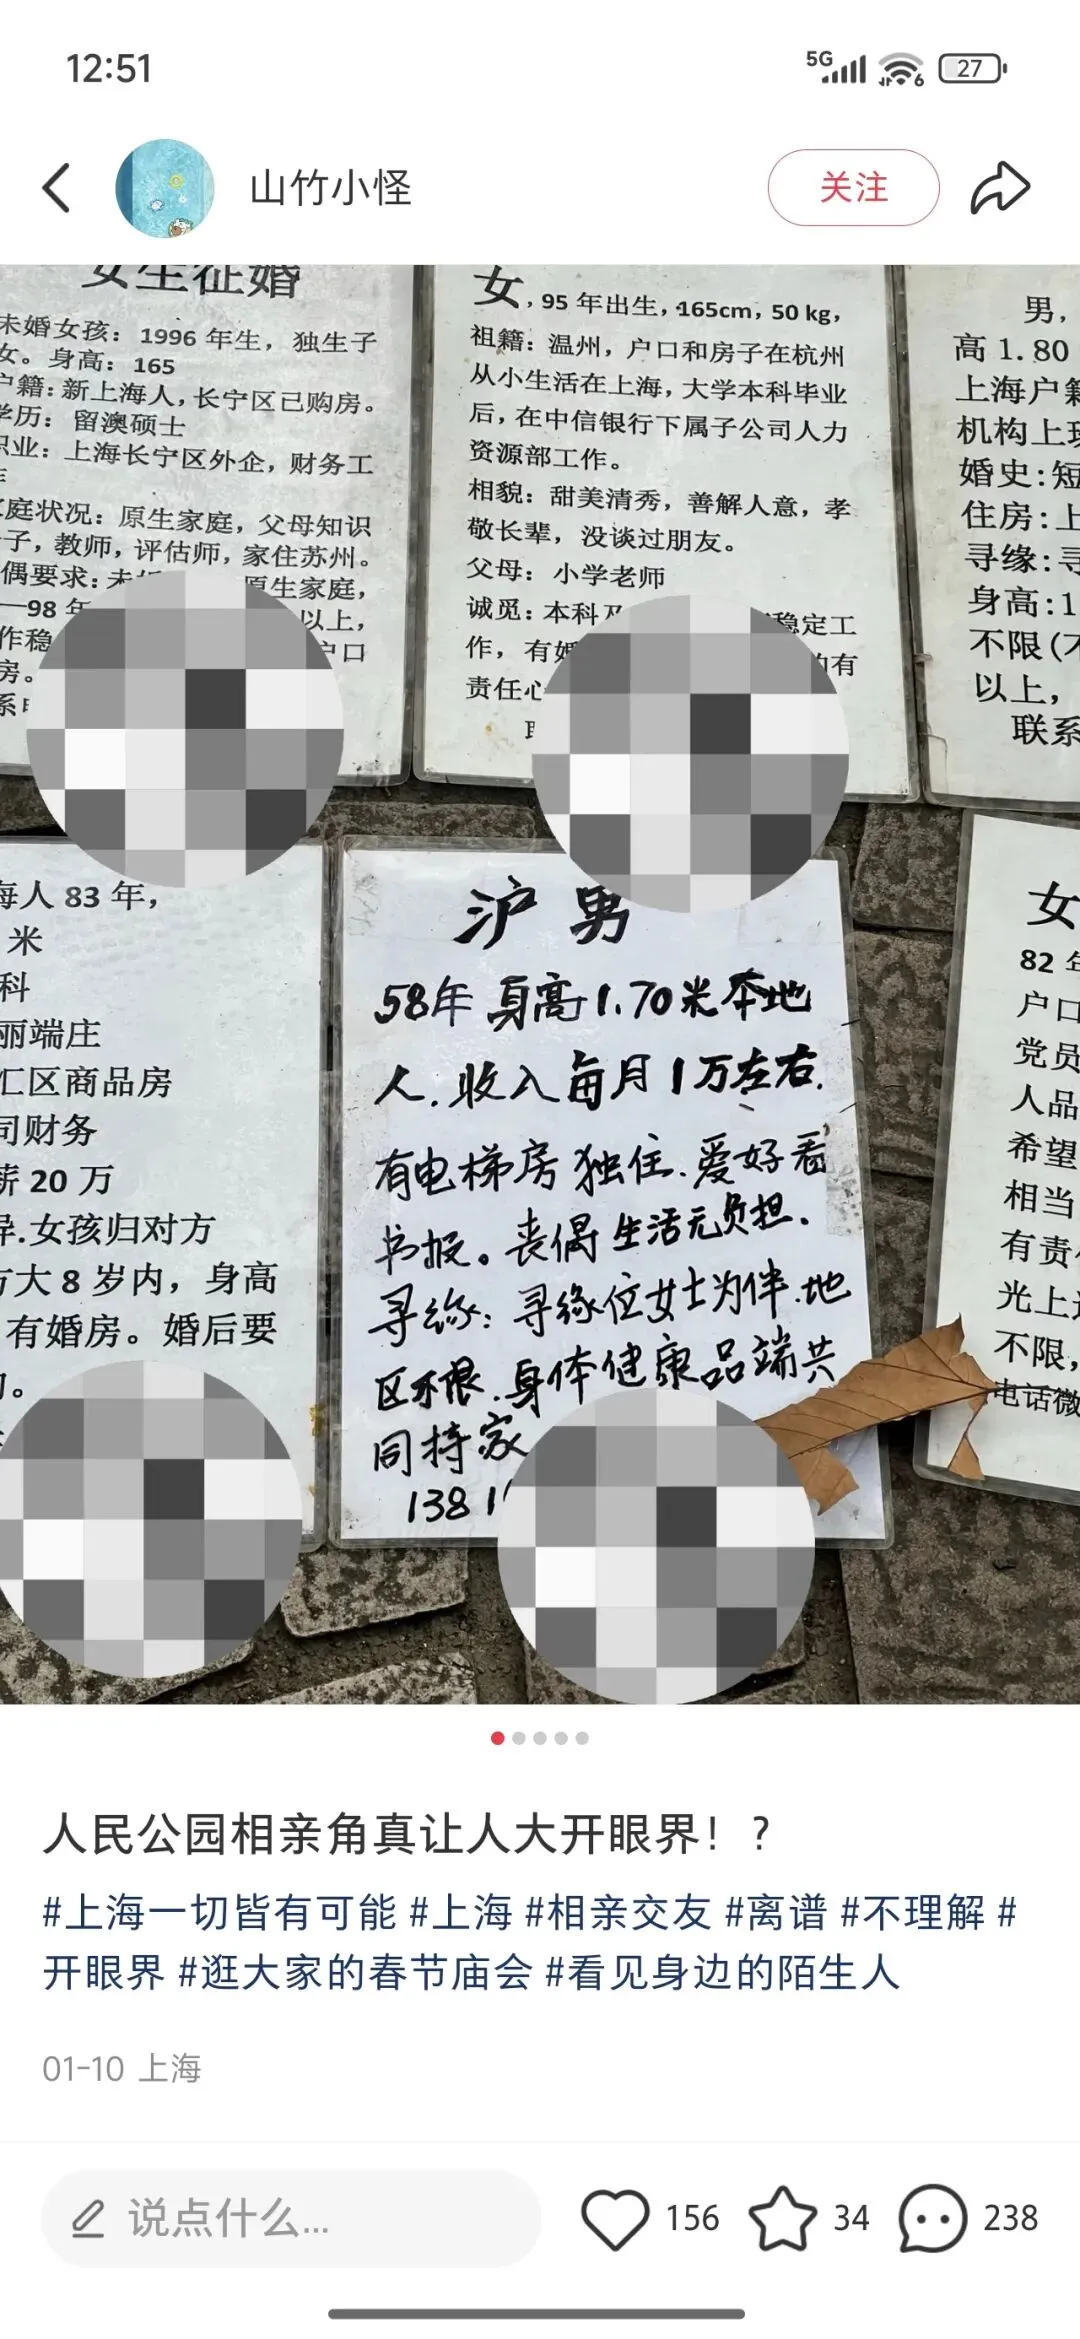 12:51
5G
6
27
山竹小怪
关注
女生征婚
未婚女孩：1996 年生，独生子
女。身高：165
户籍：新上海人，长宁区已购房。
学历：留澳硕士
职业：上海长宁区外企，财务工
作
家庭状况：原生家庭，父母知识
子，教师，评估师，家住苏州。
偶要求：未 原生家庭，
—98 年 以上，
作稳 户口
房。
系
女，95 年出生，165cm，50 kg，
祖籍：温州，户口和房子在杭州
从小生活在上海，大学本科毕业
后，在中信银行下属子公司人力
资源部工作。
相貌：甜美清秀，善解人意，孝
敬长辈，没谈过朋友。
父母：小学老师
诚觅：本科及 稳定工
作，有婚 的有
责任心
男，
高 1.80
上海户籍
机构上班
婚史：短
住房：上
寻缘：寻
身高：1
不限(不
以上，
联系
海人 83 年，
米
科
丽端庄
汇区商品房
司财务
薪 20 万
异.女孩归对方
方大 8 岁内，身高
有婚房。婚后要
沪 男
58年 身高1.70米本地
人.收入每月1万左右.
有电梯房 独住.爱好看
书报。丧偶 生活无负担.
寻缘：寻缘位女士为伴.地
区不限.身体健康品端共
同持家
138 1
女
82 年
户口
党员
人品
希望
相当
有责任
光上
不限，
电话微
人民公园相亲角真让人大开眼界！？
#上海一切皆有可能 #上海 #相亲交友 #离谱 #不理解 #
开眼界 #逛大家的春节庙会 #看见身边的陌生人
01-10 上海
说点什么...
156
34
238